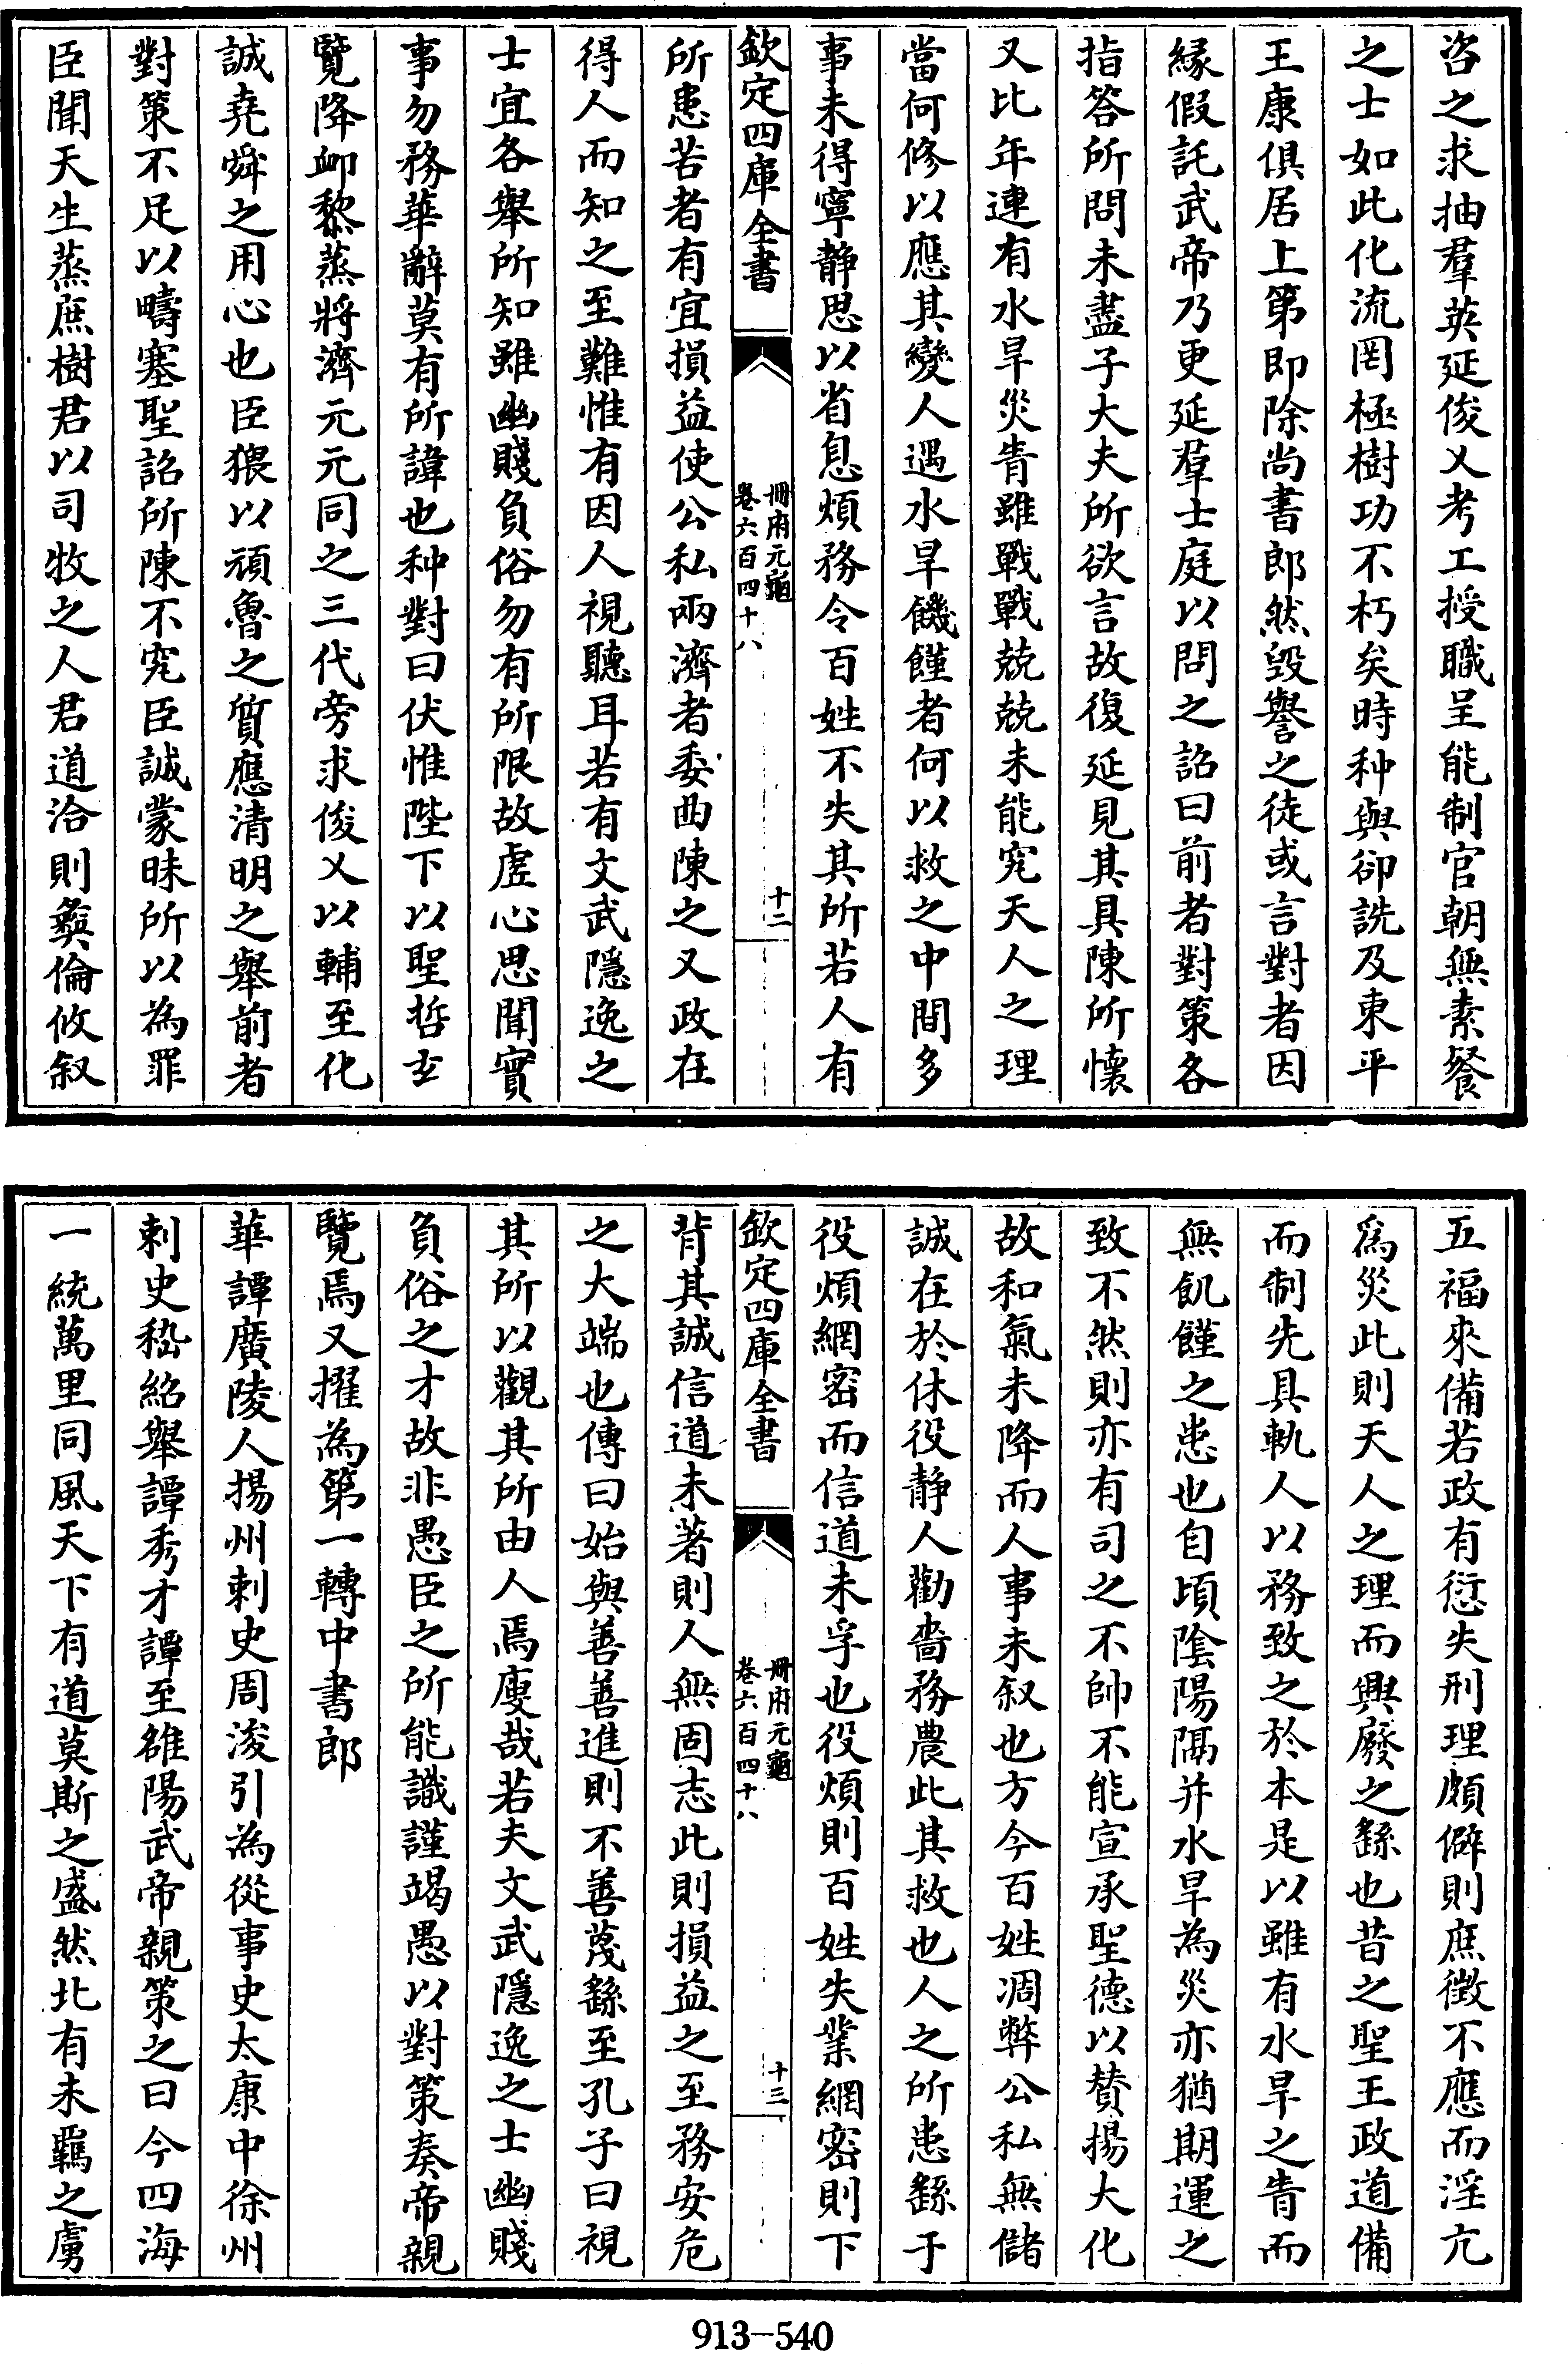 咨之求抽羣英延俊乂考工授職呈能制官朝無素餐
之士如此化流罔極樹功不朽矣時种與郤詵及東平
王康俱居上第即除尚書郎然毀譽之徒或言對者因
縁假託武帝乃更延羣士庭以問之詔曰前者對策各
指答所問未盡子大夫所欲言故復延見其具陳所懷
又比年連有水旱災眚雖戰戰兢兢未能究天人之理
當何修以應其變人遇水旱饑饉者何以救之中間多
事未得寧静思以省息煩務令百姓不失其所若人有
欽定四庫全書
冊府元龜
卷六百四十八
十二
所患苦者有宜損益使公私兩濟者委曲陳之又政在
得人而知之至難惟有因人視聽耳若有文武隱逸之
士宜各舉所知雖幽賤負俗勿有所限故虛心思聞實
事勿務華辭莫有所諱也种對曰伏惟陛下以聖哲玄
覽降卹黎蒸將濟元元同之三代旁求俊乂以輔至化
誠堯舜之用心也臣猥以頑魯之質應清明之舉前者
對策不足以疇塞聖詔所陳不究臣誠蒙昧所以為罪
臣聞天生蒸庶樹君以司牧之人君道洽則彛倫攸叙
五福來備若政有愆失刑理頗僻則庶徴不應而淫亢
爲災此則天人之理而興廢之繇也昔之聖王政道備
而制先具軌人以務致之於本是以雖有水旱之眚而
無飢饉之患也自頃隂陽隔并水旱為災亦猶期運之
致不然則亦有司之不帥不能宣承聖德以賛揚大化
故和氣未降而人事未叙也方今百姓凋弊公私無儲
誠在於休役静人勸嗇務農此其救也人之所患繇于
役煩網密而信道未孚也役煩則百姓失業網密則下
欽定四庫全書
冊府元龜
卷六百四十八
十三
背其誠信道未著則人無固志此則損益之至務安危
之大端也傳曰始與善善進則不善蔑繇至孔子曰視
其所以觀其所由人焉廋哉若夫文武隱逸之士幽賤
負俗之才故非愚臣之所能識謹竭愚以對策奏帝親
覽焉又擢為第一轉中書郎
華譚廣陵人揚州刺史周浚引為從事史太康中徐州
刺史嵇紹舉譚秀才譚至雒陽武帝親策之曰今四海
一統萬里同風天下有道莫斯之盛然北有未羈之虜
913-540